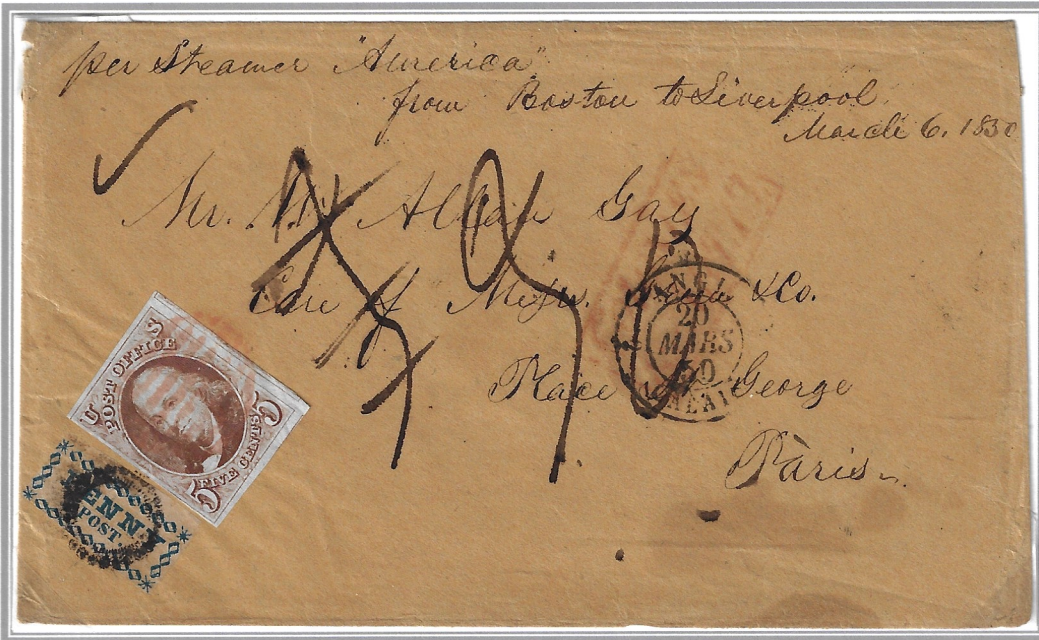 per Steamer "America"
from Boston to Liverpool
March 6. 1850
Mr. Allan Gay
Care of Messrs. & Co.
Place George
Paris
ANGL.
20
MARS
50
CALAIS
U S
POST OFFICE
FIVE CENTS
5 5
PENNY
POST